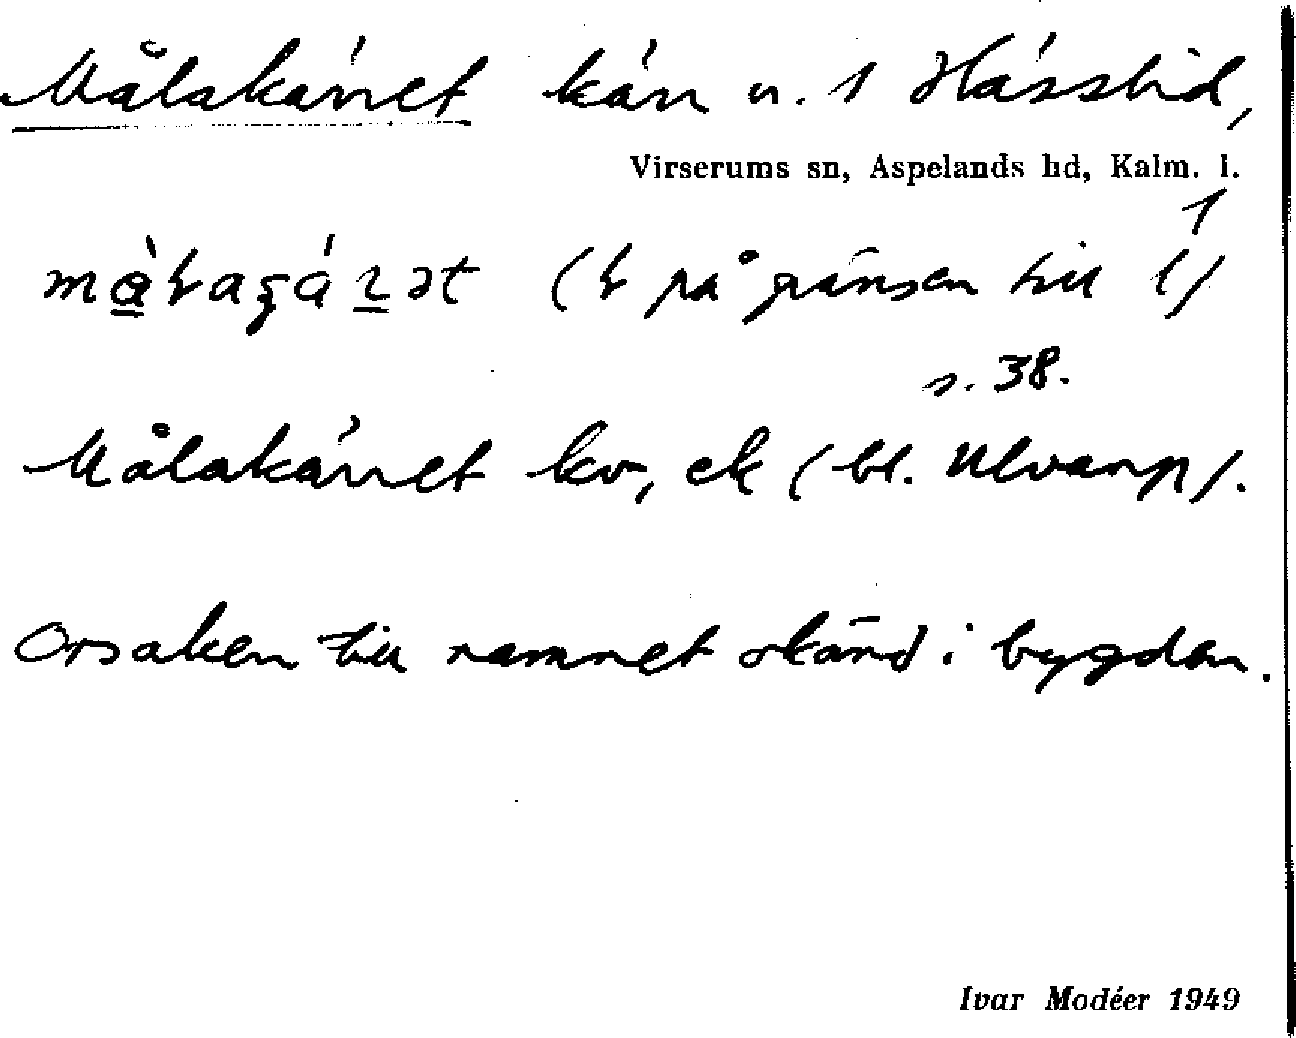 Målakärret kärr u. 1 Hässlid,
Virserums sn, Aspelands hd, Kalm. l.
1
(ł på gränsen till l)
s. 38.
Målakärret kv, ek (bl. Ulvarp).
Orsaken till namnet okänd i bygden.
Ivar Modéer 1949